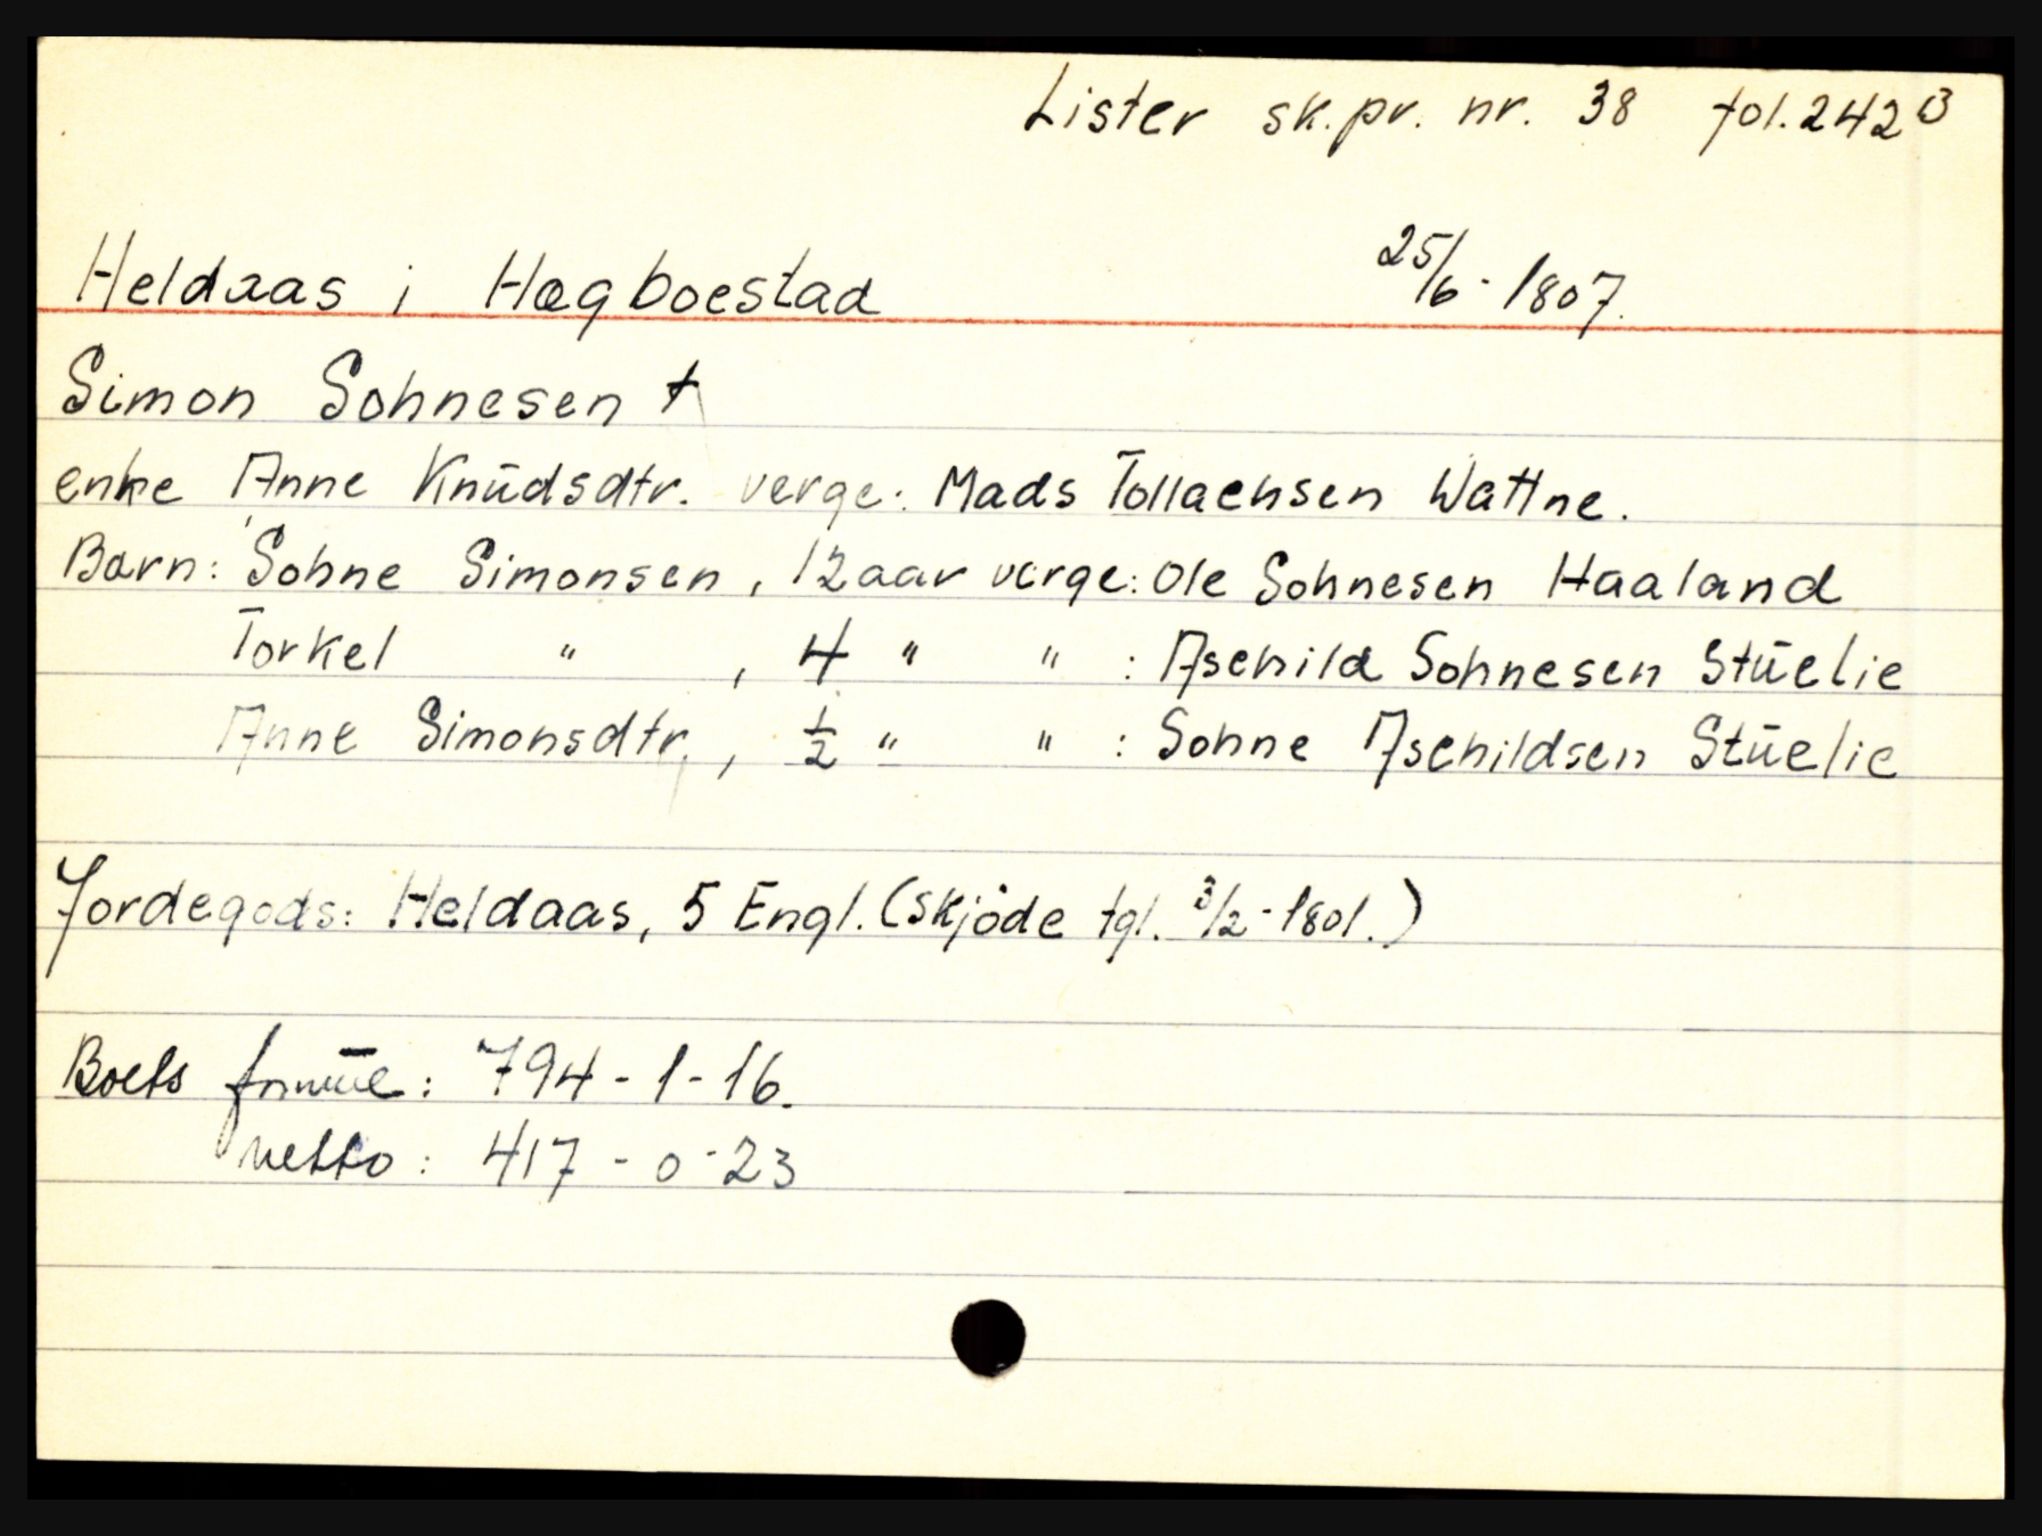 Lister sk.pr. nr. 38 fol. 242 B
Heldaas i Hægboestad 25/6-1807.
Simon Sohnesen †
enke Anne Knūdsdtr. verge: Mads Tollachsen Wattne.
Barn: Sohne Simonsen, 12 aar verge: Ole Sohnesen Haaland
Torkel " , 4 " " : Aschild Sohnesen Stūelie
Anne Simonsdtr, ½ " " : Sohne Aschildsen Stūelie
Jordegods: Heldaas, 5 Engl. (skjöde tgl. 3/2-1801.)
Boets formūe: 794-1-16.
netto: 417-0-23